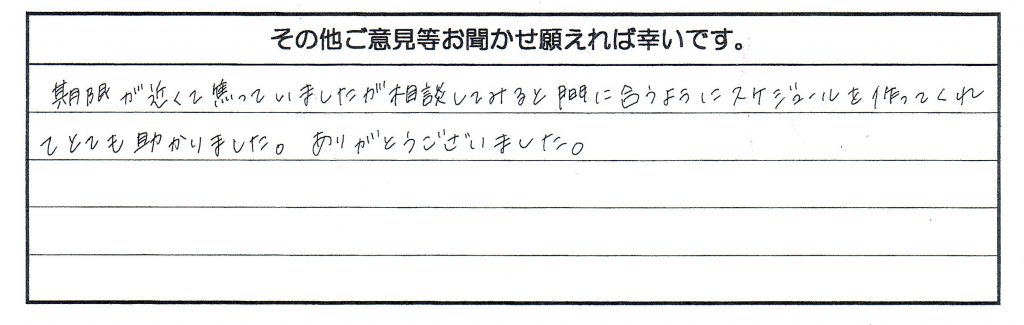 その他ご意見等お聞かせ願えれば幸いです。
期限が近くて焦っていましたが相談してみると間に合うようにスケジュールを作ってくれ
てとても助かりました。ありがとうございました。